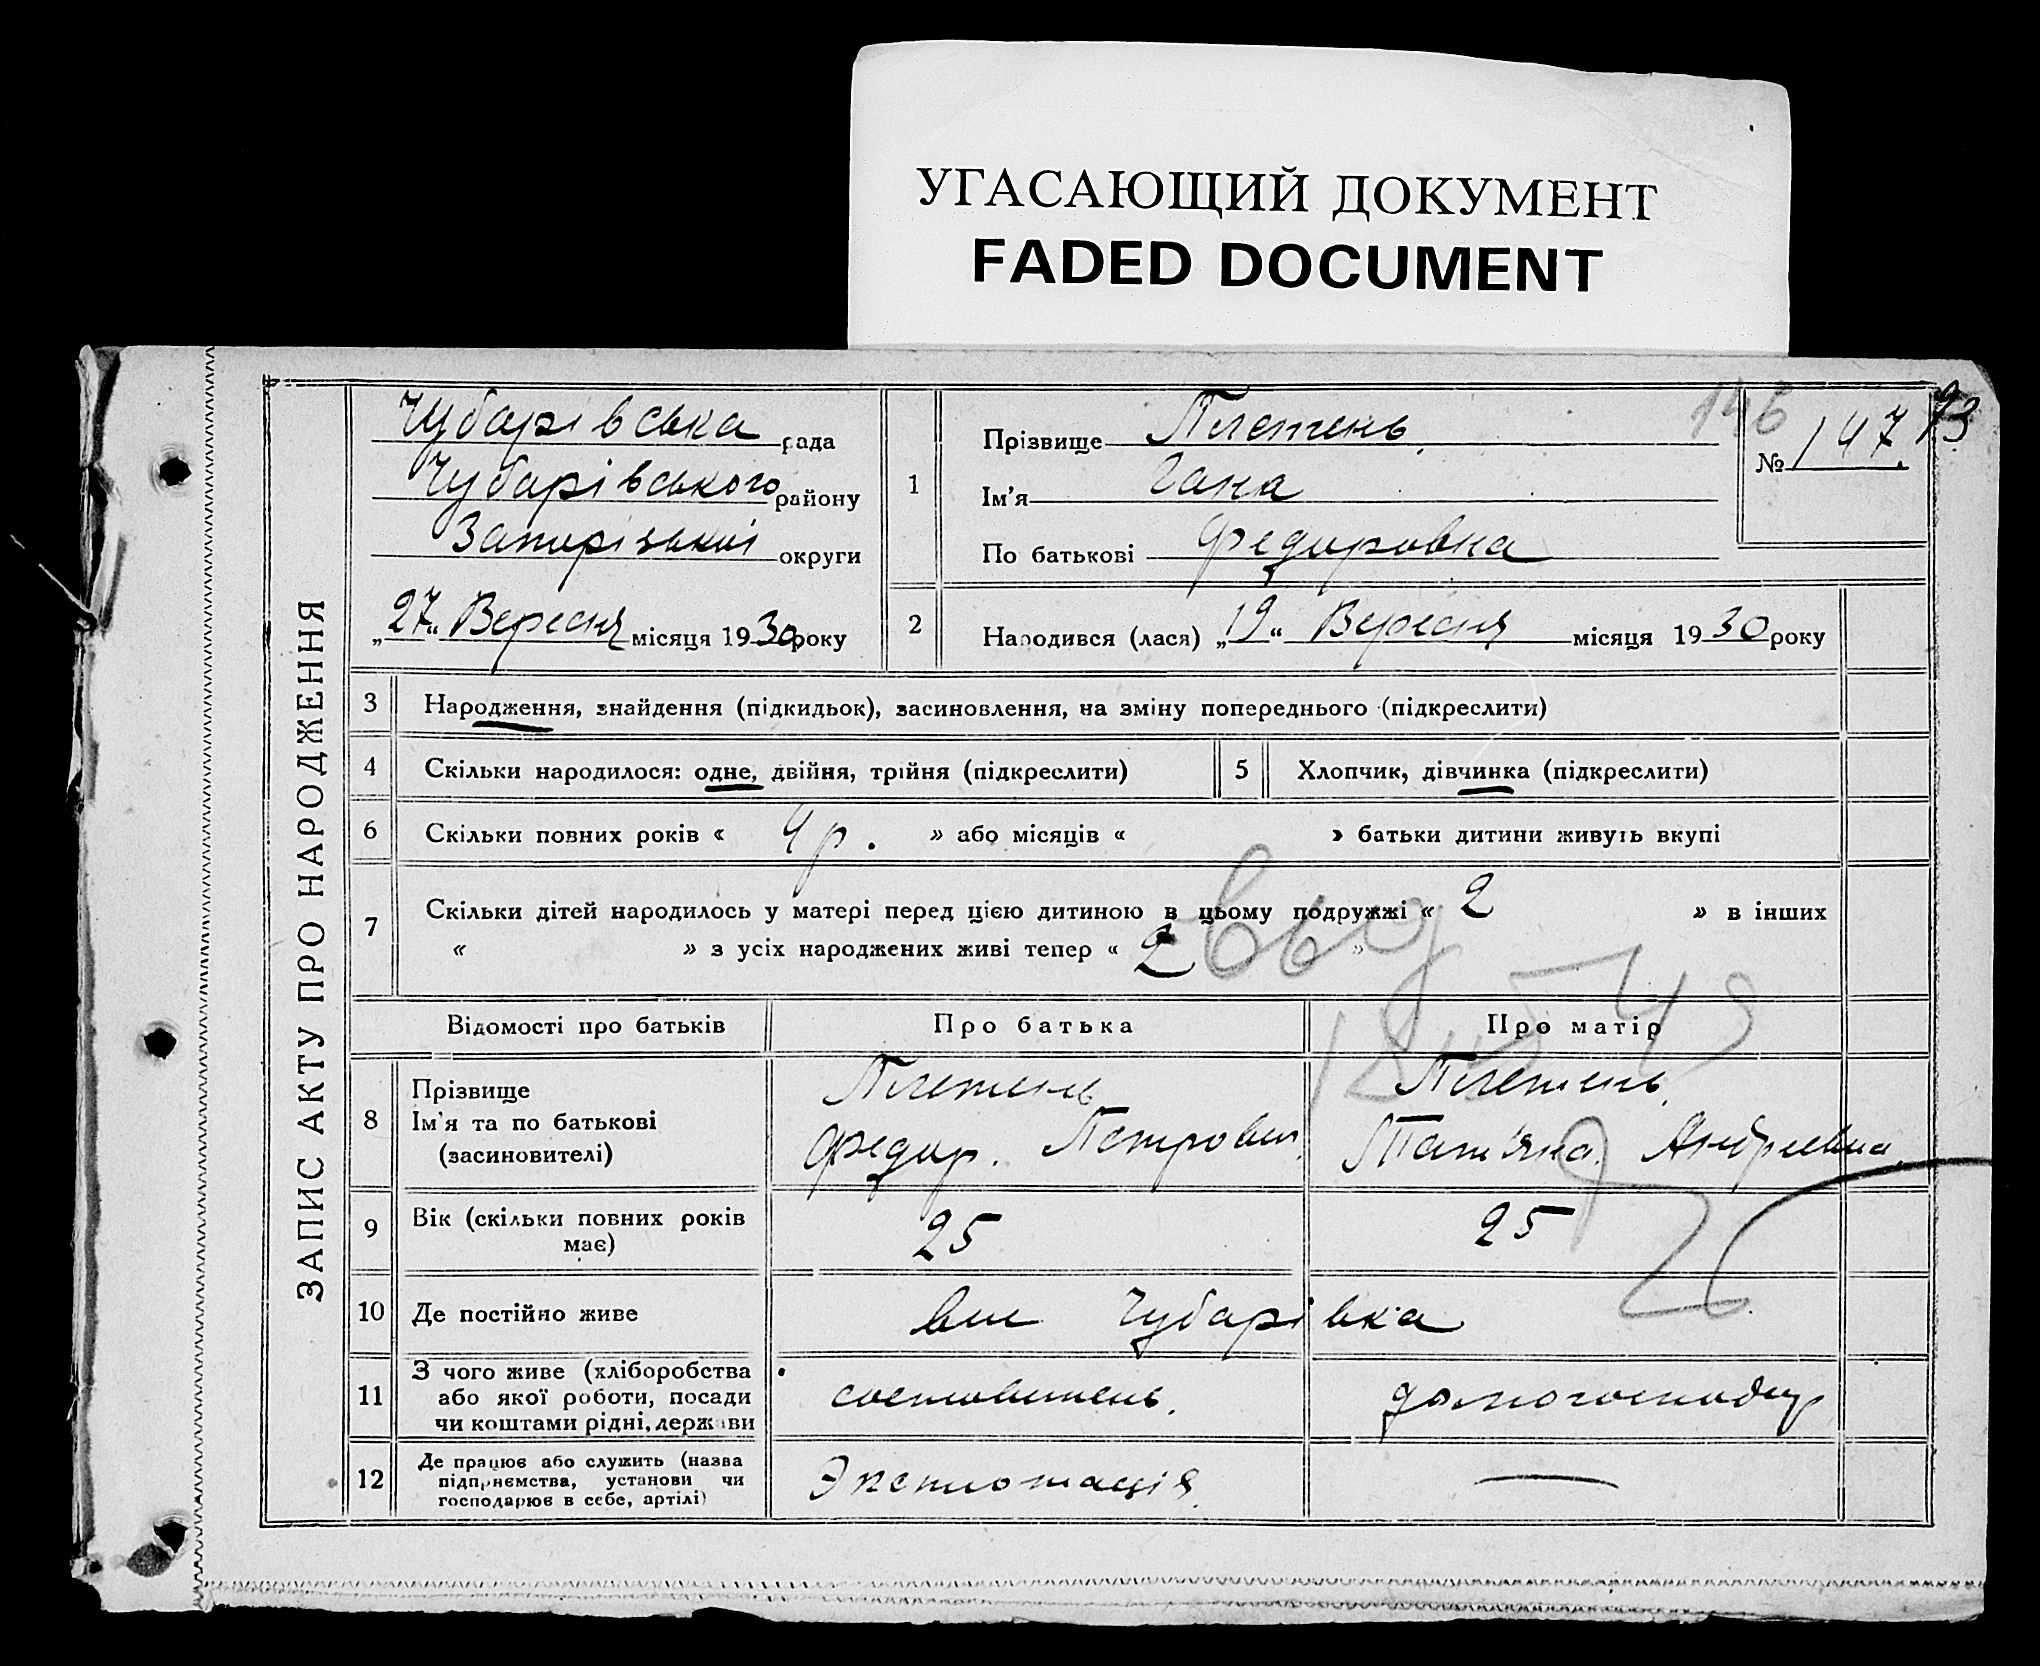 УГАСАЮЩИЙ ДОКУМЕНТ
FADED DOCUMENT
ЗАПИС АКТУ ПРО НАРОДЖЕННЯ
Чубарівська рада
Чубарівського району
Запорізької округи
„27“ Вересня місяця 1930 року
146
№ 147
93
1 Прізвище Плетень
Ім'я Гана
По батькові Федоровна
2 Народився (лася) „19“ Вересня місяця 1930 року
3 Народження, знайдення (підкидьок), засиновлення, на зміну попереднього (підкреслити)
4 Скільки народилося: одне, двійня, трійня (підкреслити)
5 Хлопчик, дівчинка (підкреслити)
6 Скільки повних років « 4 р. » або місяців « » батьки дитини живуть вкупі
7 Скільки дітей народилось у матері перед цією дитиною в цьому подружжі « 2 » в інших
« » з усіх народжених живі тепер « 2 »
Відомості про батьків Про батька Про матір
8 Прізвище
Ім'я та по батькові
(засиновителі)
Плетень
Федор. Петрович
Плетень
Татьяна Андреевна
9 Вік (скільки повних років
має)
25 25
10 Де постійно живе Чубарівка
11 З чого живе (хліборобства
або якої роботи, посади
чи коштами рідні, держави
домогосподар
12 Де працює або служить (назва
підприємства, установи чи
господарює в себе, артілі)
—